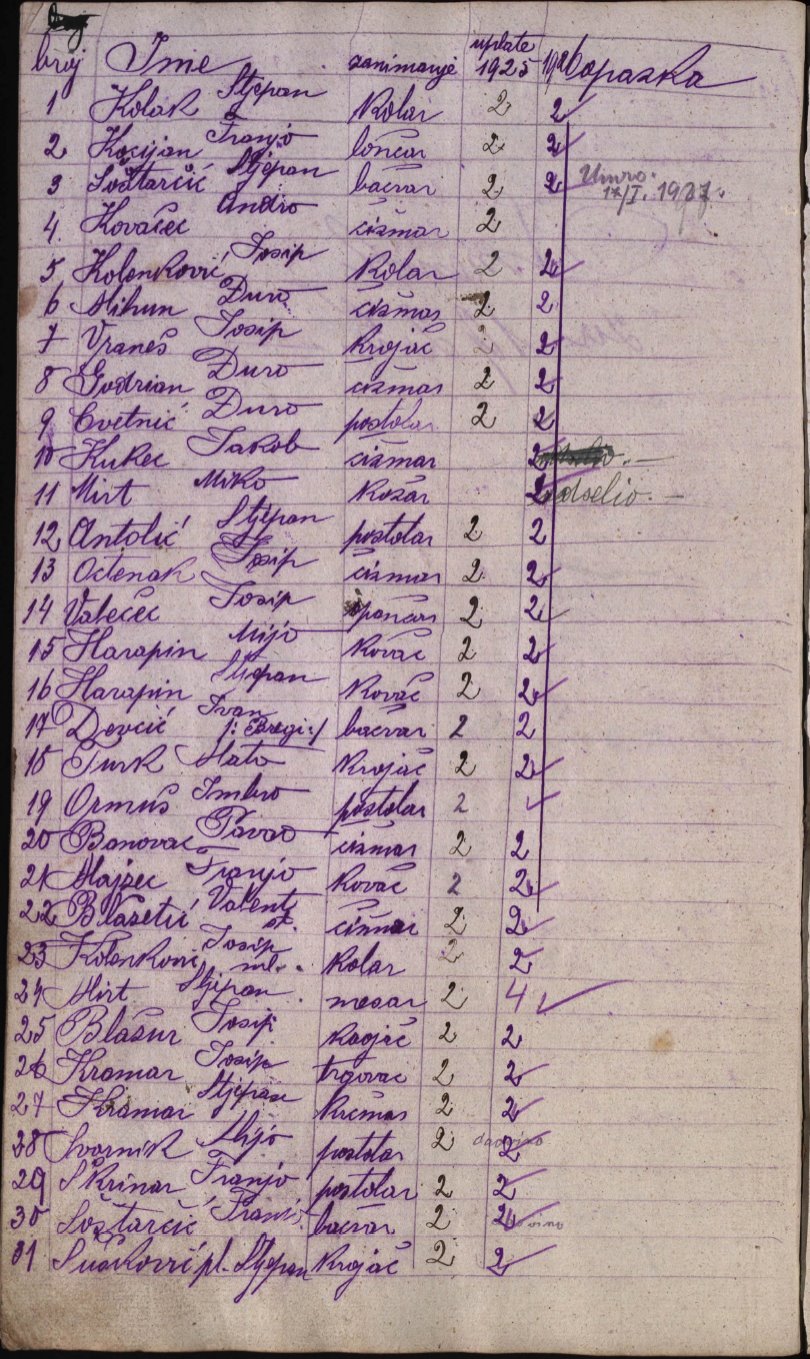 broj Ime zanimanje uplate 1925 1926 opazka
1 Kolak Stjepan kolar 2 2
2 Kocijan Franjo lončar 2 2
3 Šoštarčić Stjepan bačvar 2 2 Umro. 17/I. 1927.
4. Kovačec Andro čižmar 2
5 Kolenković Josip kolar 2 2
6 Mihun Đuro čižmar 2 2
7 Vraneš Josip krojač 2 2
8 Godrian Đuro čižmar 2 2
9 Cvetnić Đuro postolar 2 2
10 Kukec Jakob čižmar 2
11 Mirt Miko kožar 2 odselio. —
12 Antolić Stjepan postolar 2 2
13 Octenak Josip čižmar 2 2
14 Valečec Josip opančar 2 2
15 Harapin Mijo kovač 2 2
16 Harapin Stjepan kovač 2 2
17 Devčić Ivan /: Bregi :/ bačvar 2 2
18 Turk Mato krojač 2 2
19 Ormuš Imbro postolar 2
20 Banovac Pavao čižmar 2 2
21 Majzec Franjo kovač 2 2
22 Blažetić Valent st. čižmar 2 2
23 Kolenković Josip ml. kolar 2 2
24 Mirt Stjepan mesar 2 4
25 Blažur Josip krojač 2 2
26 Kramar Josip trgovac 2 2
27 Kramar Stjepan krčmar 2 2
28 Svornik Mijo postolar 2 2
29 Škrinar Franjo postolar 2 2
30 Šoštarčić Franjo bačvar 2 2
31 Sušković pl. Stjepan krojač 2 2